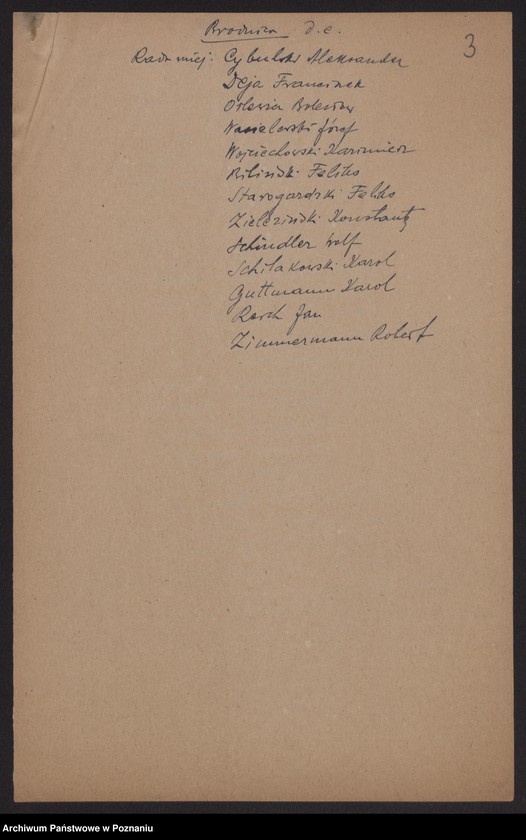 Brodnica d.c.
3
Rada miej: Cybulski Aleksander
Deja Franciszek
Orlewicz Bolesław
Wasielewski Józef
Wojciechowski Kazimierz
Biliński Feliks
Starogardzki Feliks
Zieleziński Konstanty
Schindler Wolf
Schilakowski Karol
Guttmann Karol
Rasch Jan
Zimmermann Robert
Archiwum Państwowe w Poznaniu